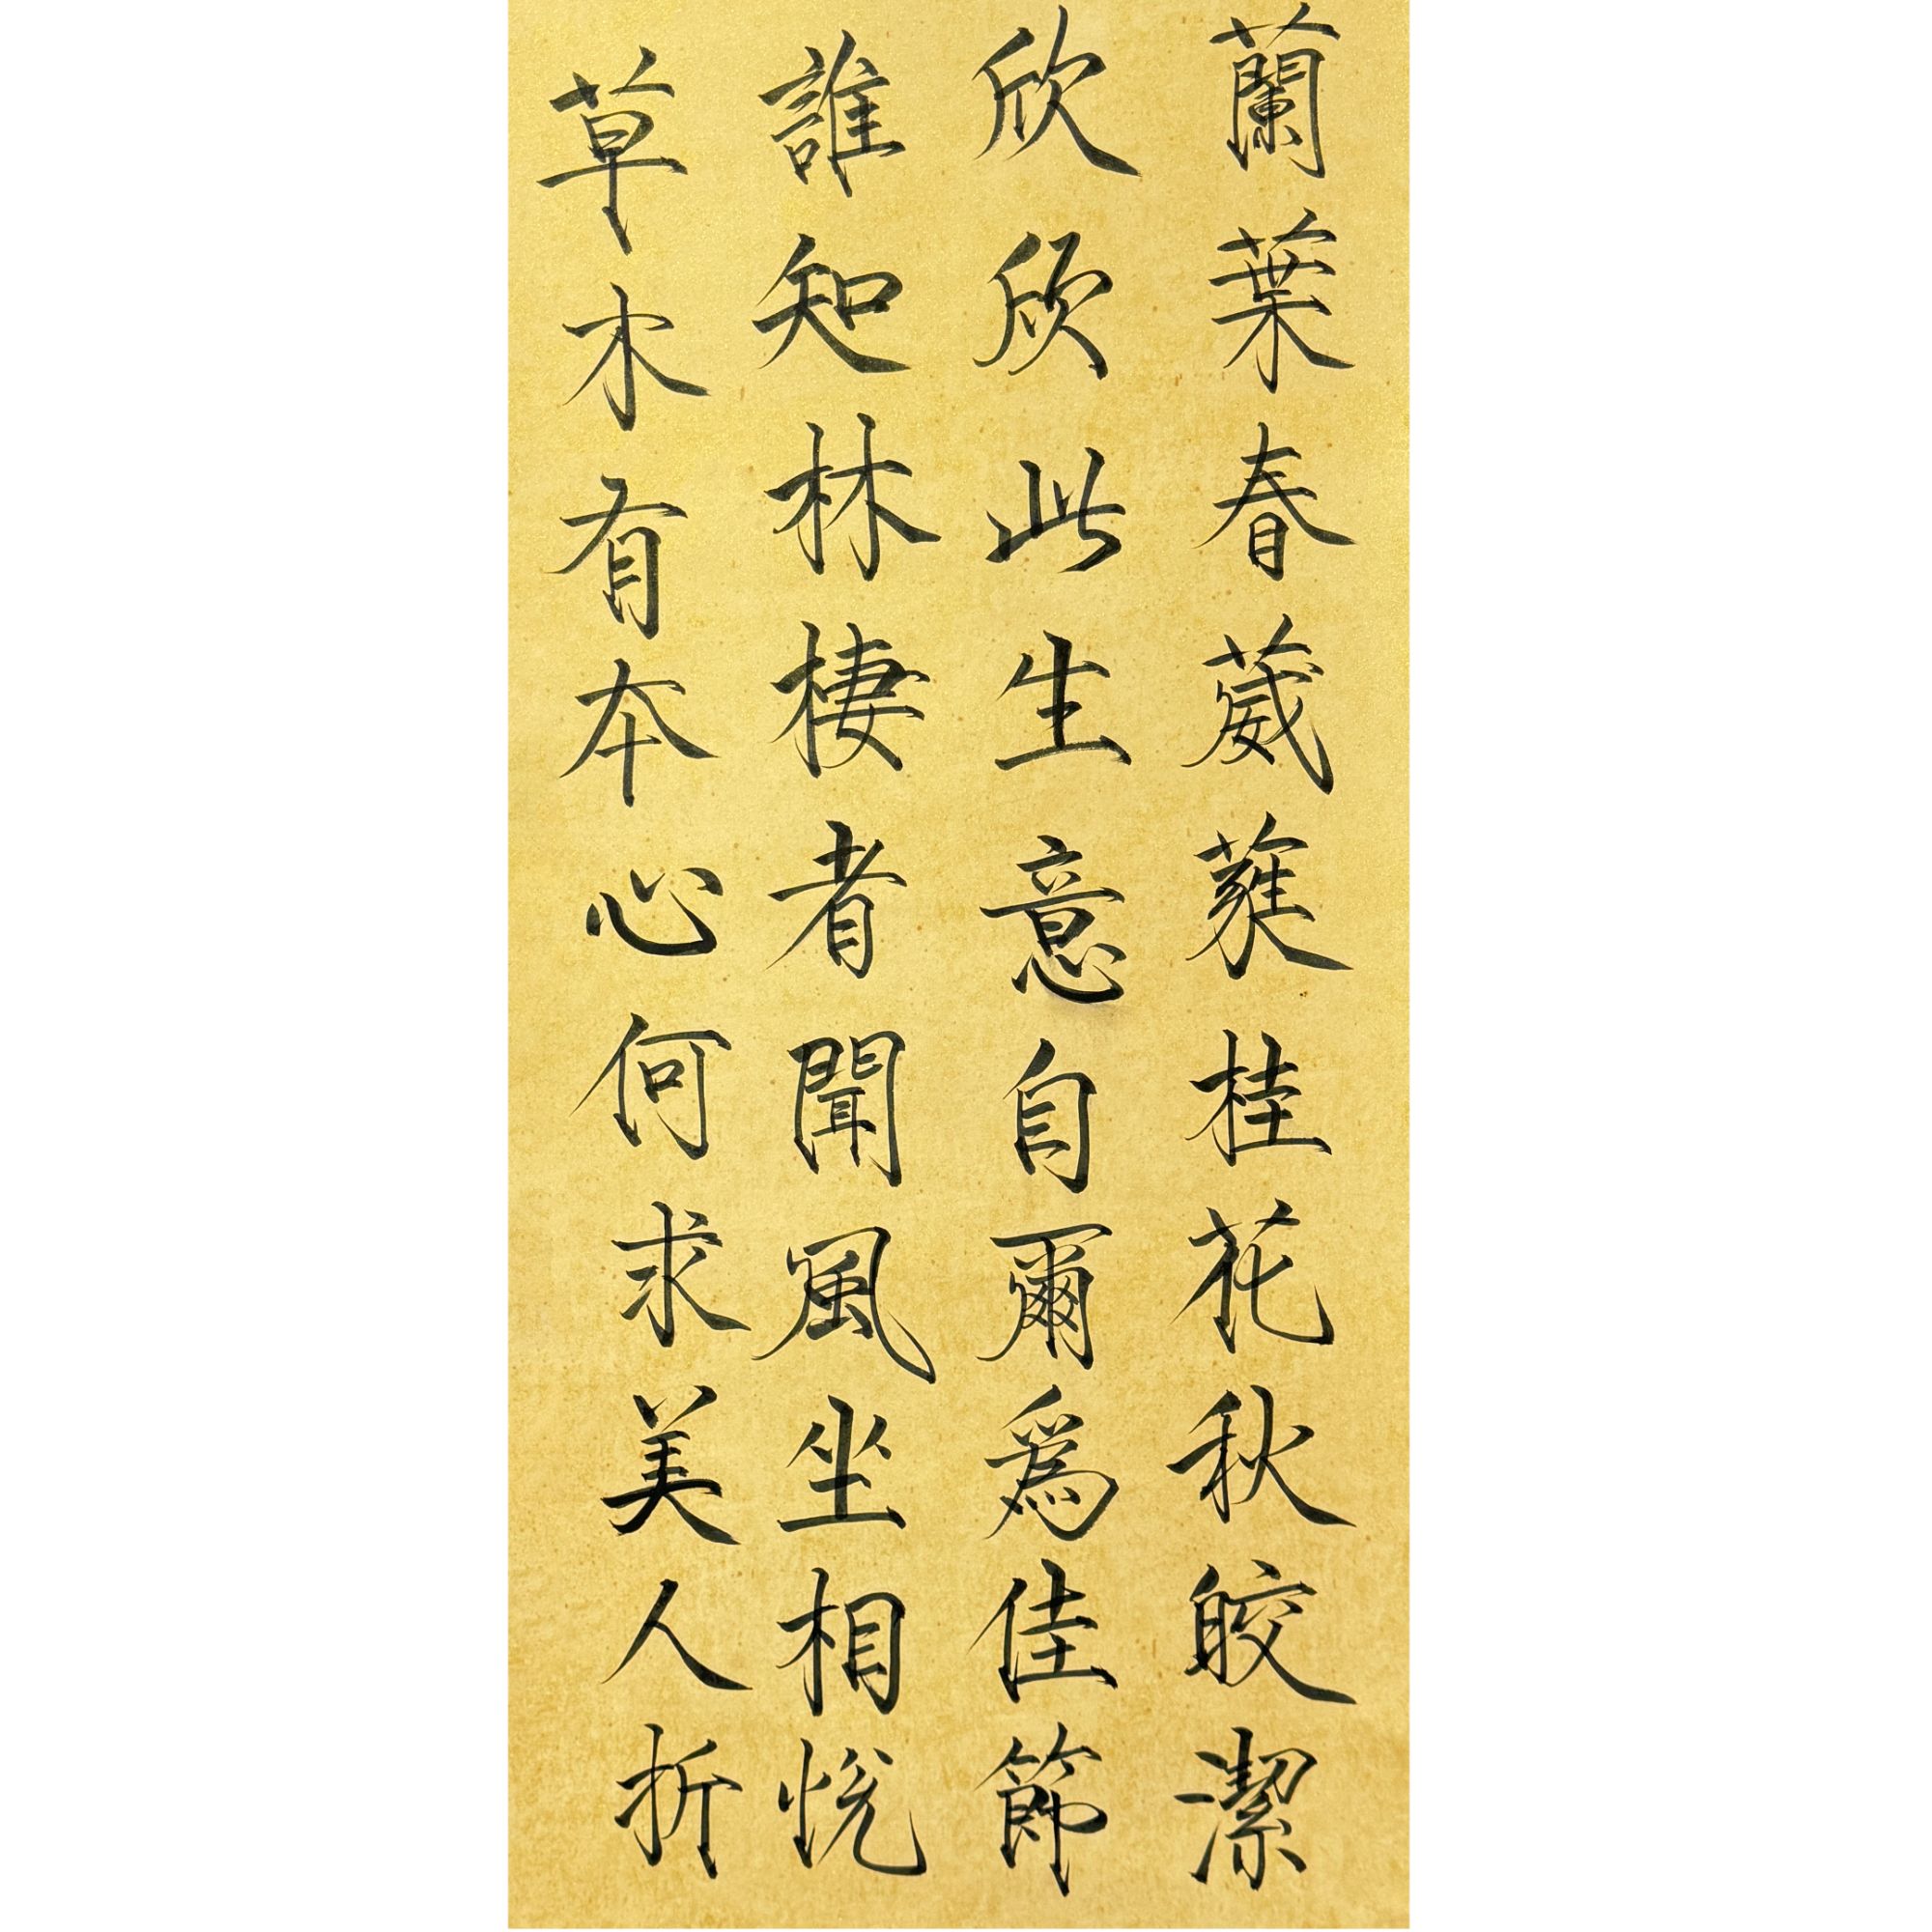 蘭葉春葳蕤桂花秋皎潔
欣欣此生意自爾為佳節
誰知林棲者聞風坐相悅
草木有本心何求美人折